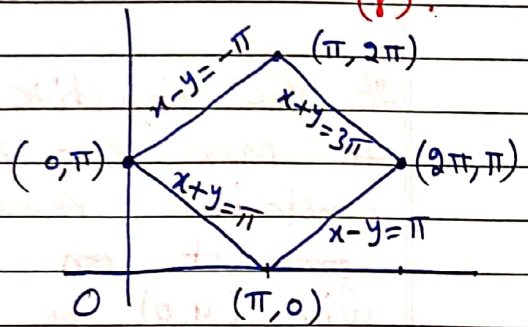 (γ).
(π, 2π)
x-y=-π
x+y=3π
(0,π)
(2π,π)
x+y=π
x-y=π
O
(π,0)